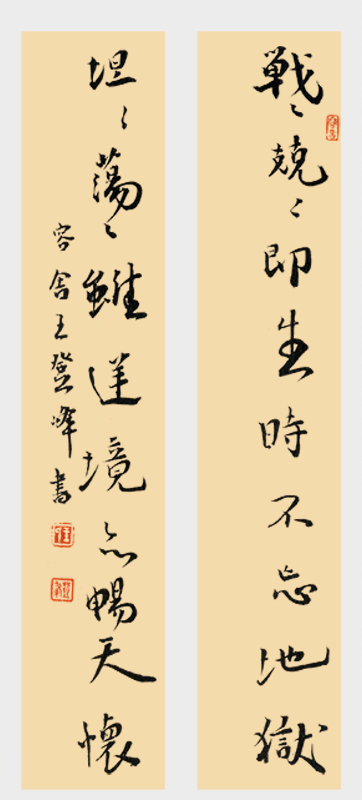 戰〻兢〻即生時不忘地獄
坦〻蕩〻雖逆境亦暢天懷
容舍王登峰書